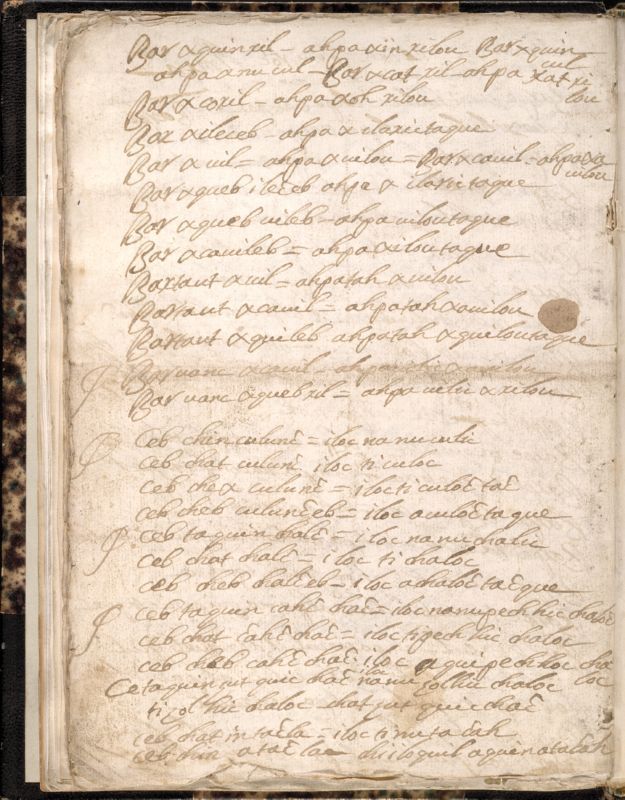 Bar xquin ril – ahpa xiin rilou Bar xquin
ahpa xnu uil – Bar xcat ril – ahpa xat ri
uil
lou
Bar xcoril – ahpa xoh rilou
Bar xileceb – ahpa x ilarictaque
Bar xuil = ahpa xuilou = Bar xcauil – ahpa xa
uilou
Bar xqueb ileceb ahpe x ilarictaque
Bar xqueb uileb – ahpa uiloutaque
Bar xcauileb = ahpa xiloutaque
Bartaut xuil = ahpatah xuilou
Bartaut xcauil = ahpatah xauilou
Bartaut xquileb ahpatah xqueloutaque
Bar uanc xcauil – ahpa uilic xauilou
Bar uanc xqueb ril = ahpa uelic xrilou
Ceb chin culunc = iloc na nu culic
Ceb chat culunc iloc ti culoc
Ceb chex culunc = iloc ti culoc tac
Ceb cheb culunceb = iloc aculoc taque
Ceb taquin chalc = iloc na nu chalic
Ceb chat chalc = iloc ti chaloc
Ceb cheb chalceb = iloc achaloc tac que
Ceb taquin cahc chac = iloc na nu pech hic chaloc
Ceb chat cahc chac = iloc tipech hic chaloc
Ceb cheb cahc chac. iloc aquipech hoc cha
loc
Cetaquin jut quic chac na nu jol hic chaloc
ti jol hic chaloc chat jut quic chac
Ceb chat in tacla = iloc ti nu ta cah
Ceb chin atac lac chi iloquil aquin atacah